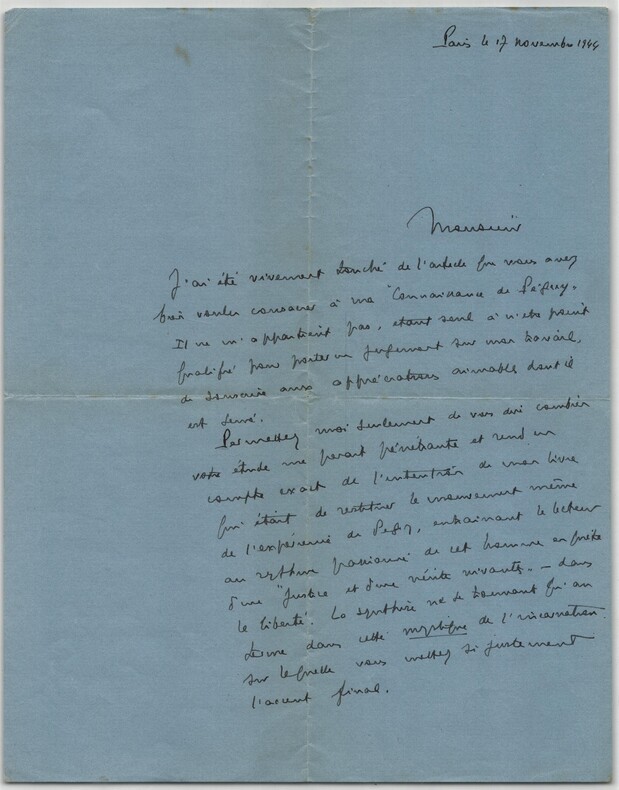 Paris le 17 novembre 1944
Monsieur
J'ai été vivement touché de l'article que vous avez
bien voulu consacrer à ma "Connaissance de Péguy.
Il ne m'appartient pas, étant seul à n'être point
qualifié pour porter un jugement sur mon travail,
de souscrire aux appréciations aimables dont il
est semé.
Permettez moi seulement de vous dire combien
votre étude me parait pénétrante et rend un
compte exact de l'intention de mon livre
qui était de restituer le mouvement même
de l'expérience de Péguy, entrainant le lecteur
au rythme passionné de cet homme en quête
d'une "Justice et d'une vérité vivantes" – dans
la liberté. La synthèse ne se trouvant qu'au
terme dans cette mystique de l'incarnation
sur laquelle vous mettez si justement
l'accent final.